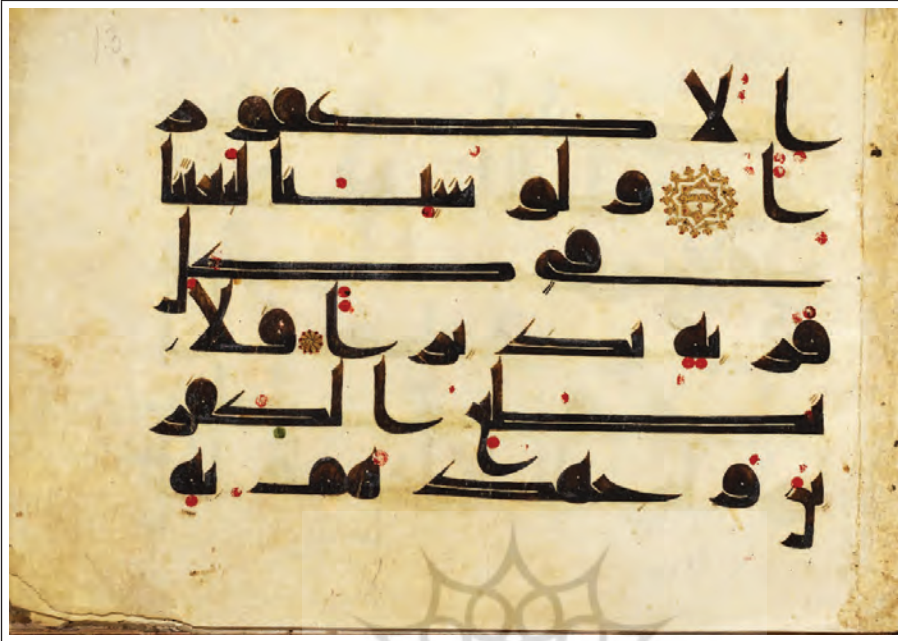 13
الا كفور
ا ولو شينا لبعثنا
في كل
قرية نذيرا فلا
تطع الكفر
ين وجهدهم به